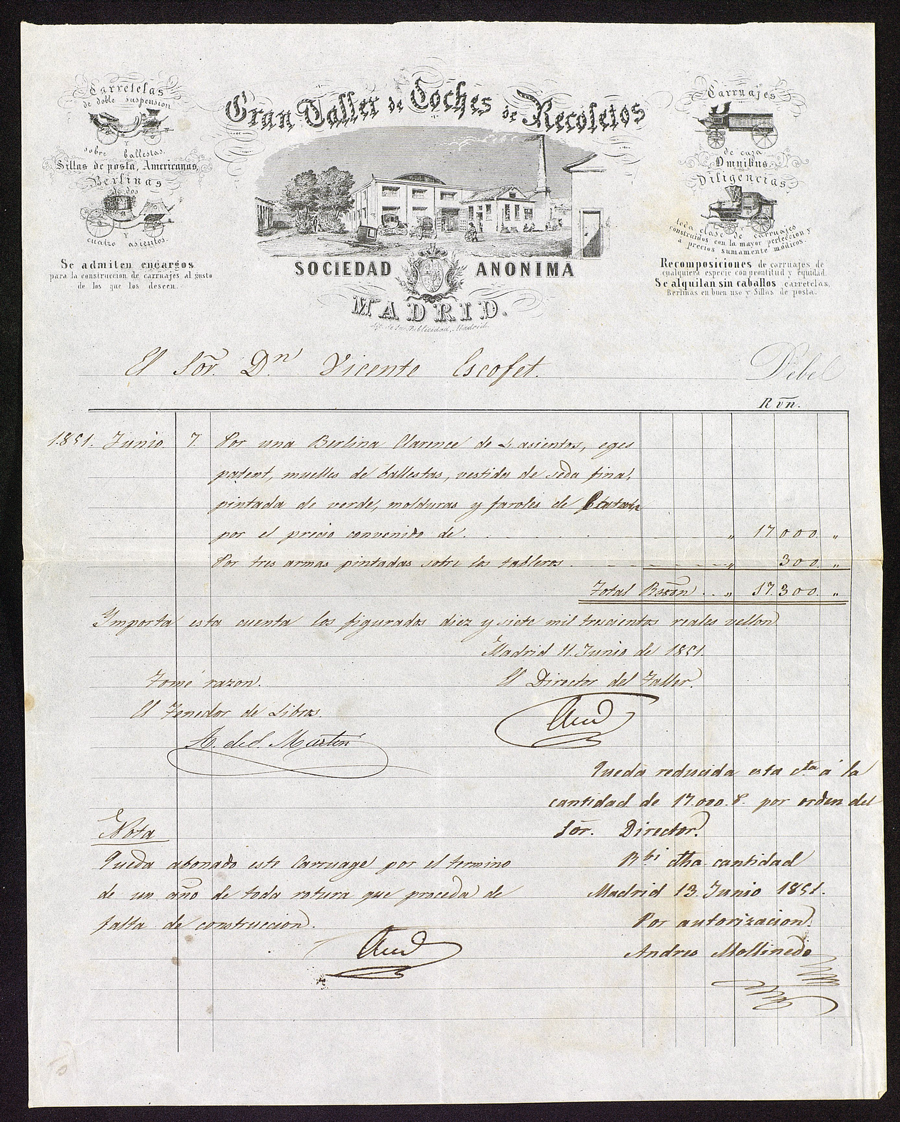 Gran Taller de Coches de Recoletos
Carretelas
de doble suspension
y
sobre ballestas.
Sillas de posta, Americanas,
Berlinas
de dos
y
cuatro asientos.
Se admiten encargos
para la construccion de carruajes al gusto
de los que los deseen.
SOCIEDAD ANONIMA
MADRID.
Lit. de La Publicidad, Madrid.
Carruajes
de caza
Omnibus
Diligencias
toda clase de carruajes
construidos con la mayor perfeccion y
a precios sumamente módicos
Recomposiciones de carruajes de
cualquiera especie con prontitud y equidad.
Se alquilan sin caballos carretelas,
Berlinas en buen uso y Sillas de posta.
El Sor. Dn. Vicente Escofet. Debe
R vn.
1851. Junio 7. Por una Berlina Clarence de 4 asientos, eges
patent, muelles de ballestas, vestida de seda fina,
pintada de verde, molduras y faroles de
por el precio convenido de . . . " 17.000. "
Por tres armas pintadas sobre los tableros . . . " 300. "
Total Rsvn . . " 17.300. "
Importa esta cuenta los figurados diez y siete mil trescientos reales vellon
Madrid 11 Junio de 1851.
Tomé razon. El Director del Taller.
El Tenedor de Libros.
A. de S. Martin
Queda reducida esta cta á la
cantidad de 17.000 r. por orden del
Sor. Director.
Rbi dha cantidad
Madrid 13. Junio 1851.
Por autorizacion.
Andres Mollinedo
Nota
Queda abonado este Carruage por el termino
de un año de toda rotura que proceda de
falta de construccion.